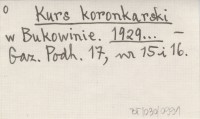 o
Kurs koronkarski
w Bukowinie. 1929... –
Gaz. Podh. 17, nr 15 i 16.